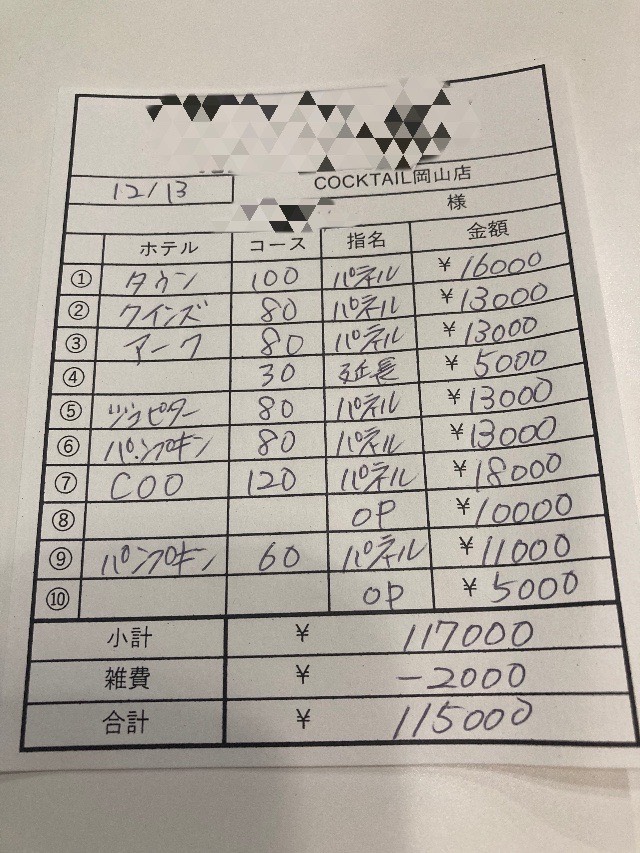 COCKTAIL岡山店
12/13
様
ホテル コース 指名 金額
① タウン 100 パネル ¥16000
② クインズ 80 パネル ¥13000
③ アーク 80 パネル ¥13000
④ 30 延長 ¥5000
⑤ ジュピター 80 パネル ¥13000
⑥ パンプキン 80 パネル ¥13000
⑦ COO 120 パネル ¥18000
⑧ OP ¥10000
⑨ パンプキン 60 パネル ¥11000
⑩ OP ¥5000
小計 ¥ 117000
雑費 ¥ -2000
合計 ¥ 115000